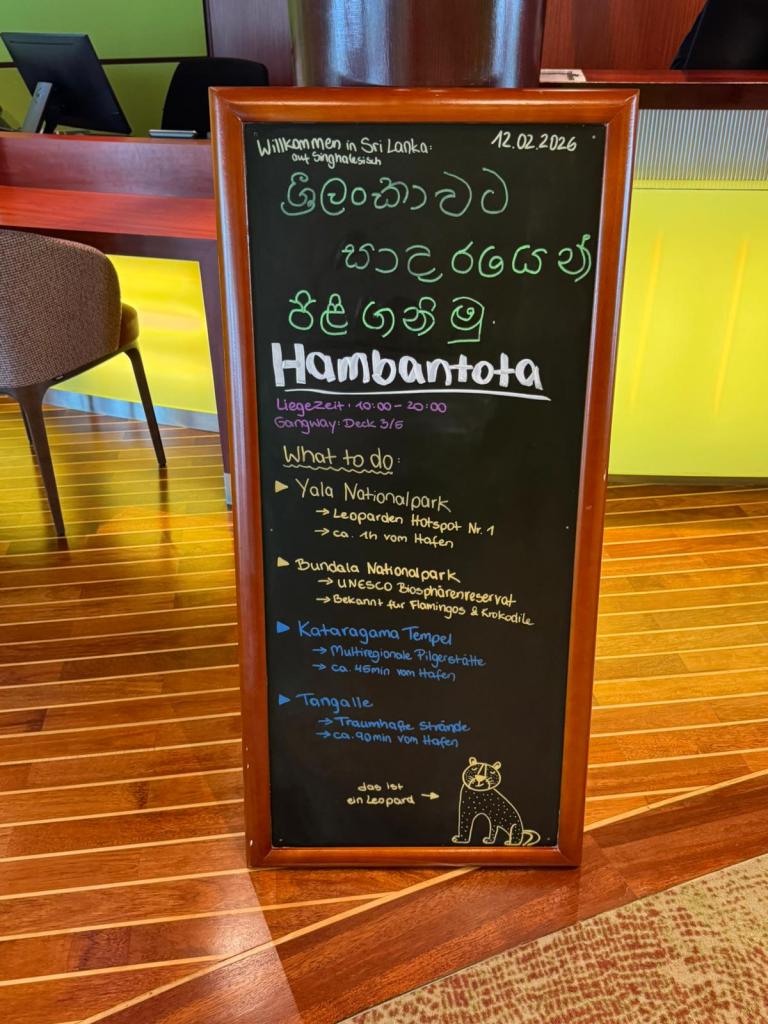 Willkommen in Sri Lanka:
auf Singhalesisch
12.02.2026
ශ්‍රී ලංකාවට
සාදරයෙන්
පිළිගනිමු.
Hambantota
Liegezeit: 10:00 - 20:00
Gangway: Deck 3/5
What to do:
► Yala Nationalpark
→ Leoparden Hotspot Nr. 1
→ ca. 1h vom Hafen
► Bundala Nationalpark
→ UNESCO Biosphärenreservat
→ Bekannt für Flamingos & Krokodile
► Kataragama Tempel
→ Multiregionale Pilgerstätte
→ ca. 45min vom Hafen
► Tangalle
→ Traumhafte Strände
→ ca. 90min vom Hafen
das ist
ein Leopard →